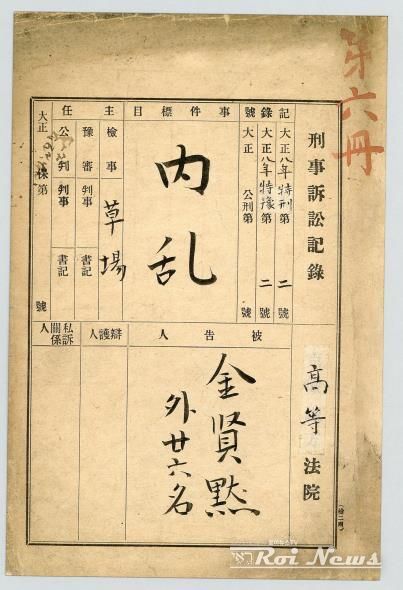 第六冊
刑事訴訟記錄
高等法院
記錄號
大正八年特刑第二號
大正八年特豫第二號
大正 公刑第 號
事件標目
內乱
主任
檢事 草場
豫審判事 書記
公判判事 書記
大正 保第 號
被告人
金賢黙
外廿六名
辯護人
私訴關係人
Roi News